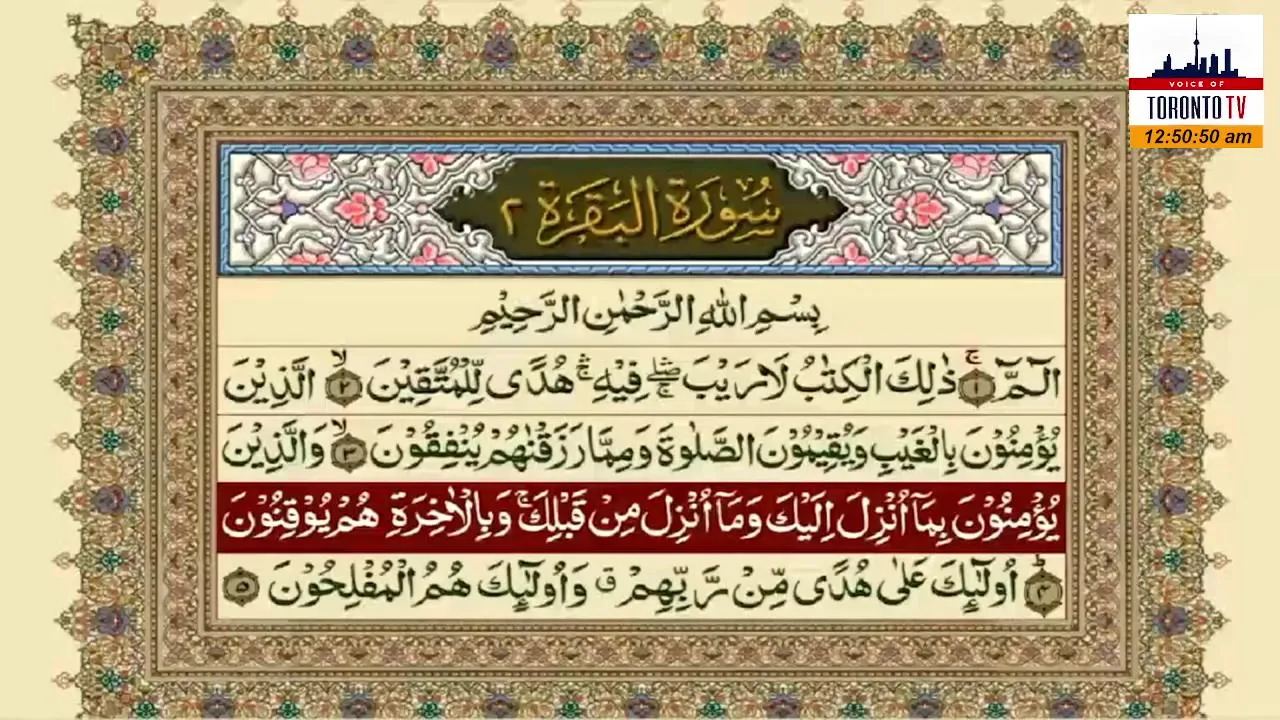 VOICE OF
TORONTO TV
12:50:50 am
سُورَةُ الْبَقَرَةِ ٢
بِسْمِ اللّٰهِ الرَّحْمٰنِ الرَّحِيْمِ
الٓمّٓ ۚ ١ ذٰلِكَ الْكِتٰبُ لَا رَيْبَ ۛۖۚ فِيْهِ ۛۚ هُدًى لِّلْمُتَّقِيْنَ ۙ ٢ الَّذِيْنَ
يُؤْمِنُوْنَ بِالْغَيْبِ وَيُقِيْمُوْنَ الصَّلٰوةَ وَمِمَّا رَزَقْنٰهُمْ يُنْفِقُوْنَ ۙ ٣ وَالَّذِيْنَ
يُؤْمِنُوْنَ بِمَاۤ اُنْزِلَ اِلَيْكَ وَمَاۤ اُنْزِلَ مِنْ قَبْلِكَ ۚ وَبِالْاٰخِرَةِ هُمْ يُوْقِنُوْنَ
ؕ ٤ اُولٰٓئِكَ عَلٰى هُدًى مِّنْ رَّبِّهِمْ ۗ وَاُولٰٓئِكَ هُمُ الْمُفْلِحُوْنَ ٥